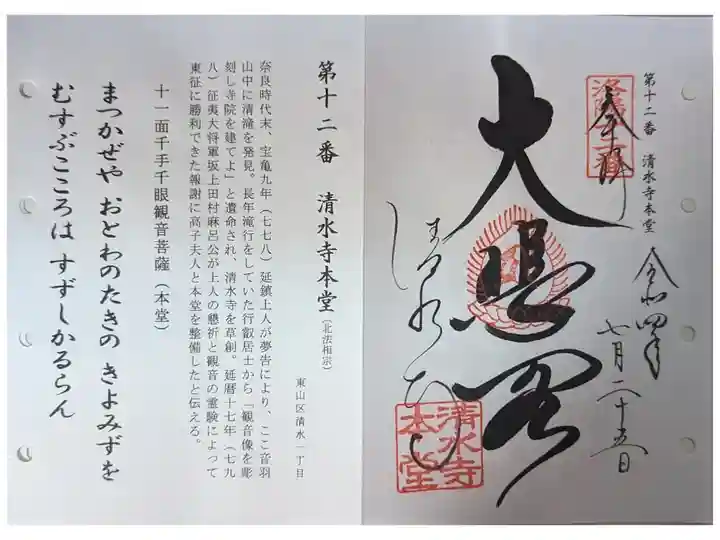 第十二番 清水寺本堂(北法相宗)
東山区清水一丁目
奈良時代末、宝亀九年(七七八)延鎮上人が夢告により、ここ音羽
山中に清滝を発見。長年滝行をしていた行叡居士から「観音像を彫
刻し寺院を建てよ」と遺命され、清水寺を草創。延暦十七年(七九
八)征夷大将軍坂上田村麻呂公が上人の懇祈と観音の霊験によって
東征に勝利できた報謝に高子夫人と本堂を整備したと伝える。
十一面千手千眼観音菩薩(本堂)
まつかぜや おとわのたきの きよみずを
むすぶこころは すずしかるらん
第十二番 清水寺本堂
令和四年
七月二十五日
奉拝
大悲閣
清水寺
本堂